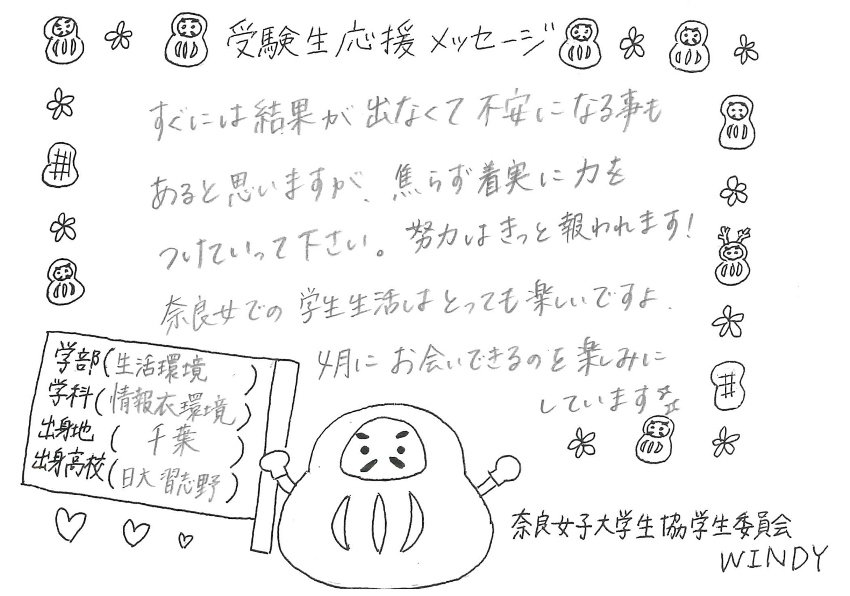 受験生応援メッセージ
すぐには結果が出なくて不安になる事も
あると思いますが、焦らず着実に力を
つけていって下さい。努力はきっと報われます!
奈良女での学生生活はとっても楽しいですよ.
4月にお会いできるのを楽しみに
しています
学部(生活環境)
学科(情報衣環境)
出身地(千葉)
出身高校(日大習志野)
奈良女子大学生協学生委員会
WINDY